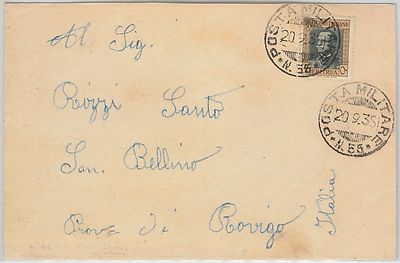 POSTA MILITARE
20.9.35
* N. 55 *
ERITREA
POSTA MILITARE
20.9.35
* N. 55 *
Al Sig.
Rözzi Santo
San. Bellino
Prov. di Rovigo
Italia